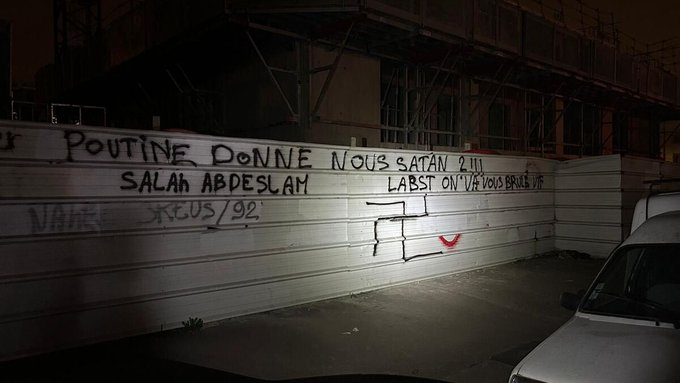 POUTINE DONNE NOUS SATAN 2 !!!
SALAH ABDESLAM LABST ON VA VOUS BRULE VIF
/92